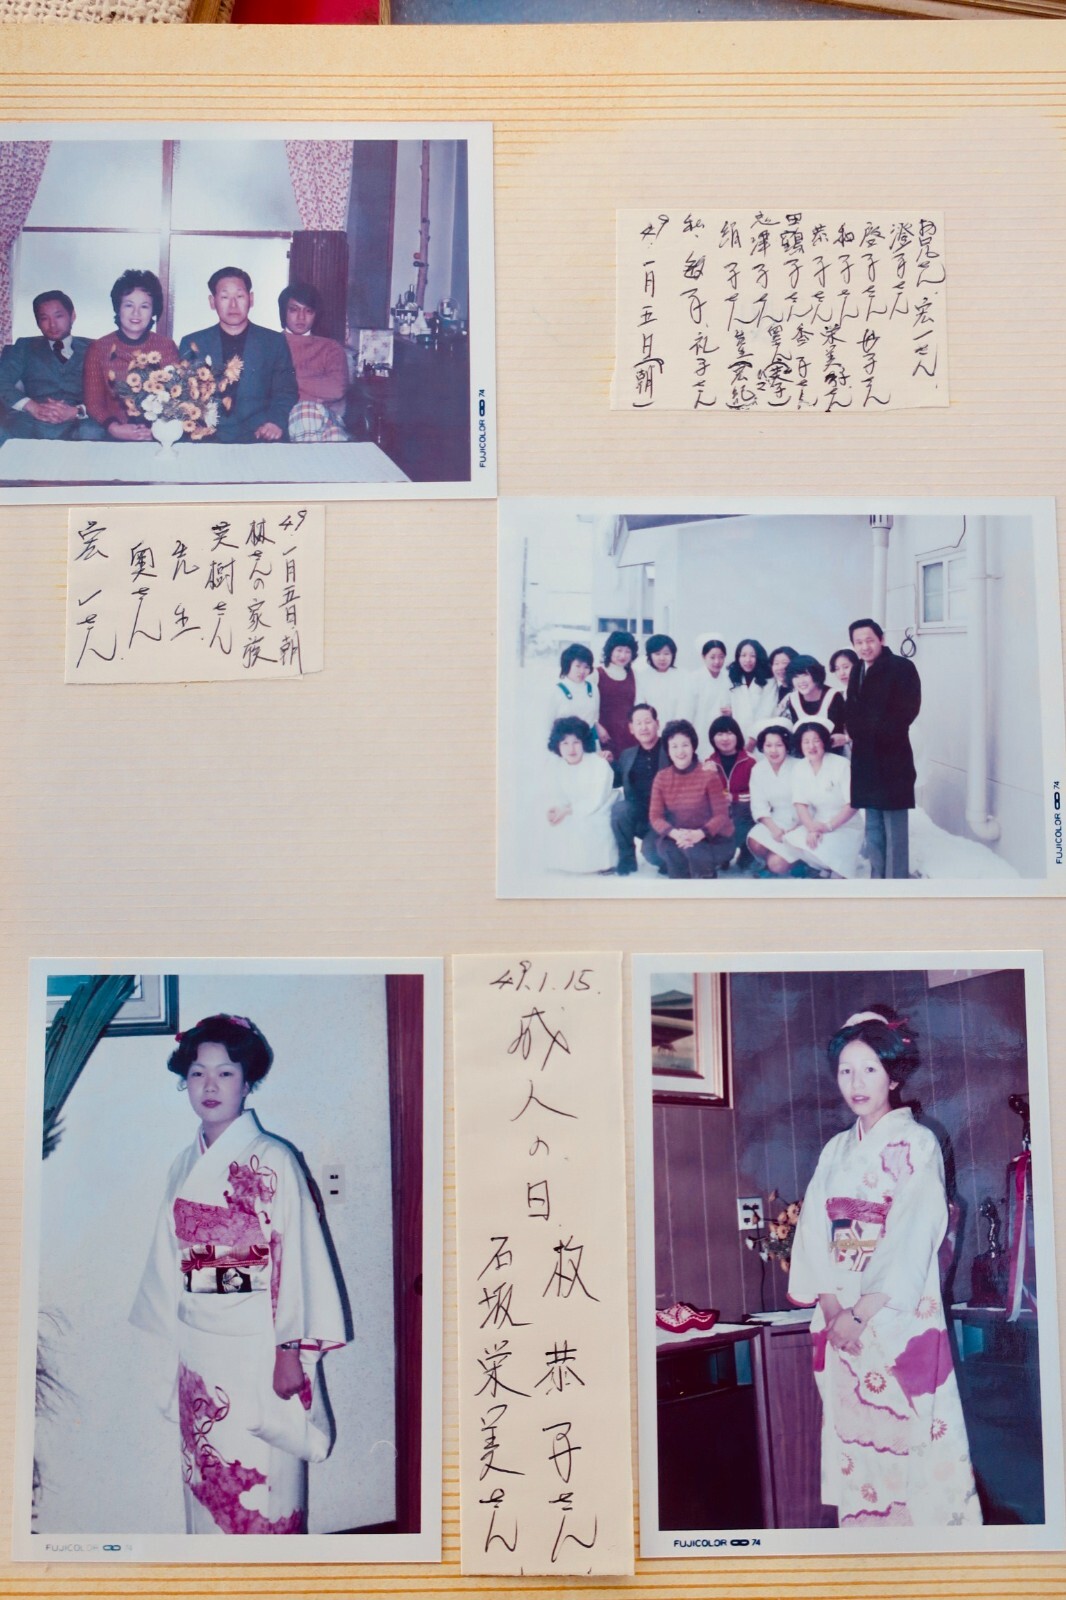 FUJICOLOR 74
49.一月五日.朝
林さんの家族
英樹さん
先生.
奥さん
宏一さん.
お兄さん.宏一さん.
澄子さん
啓子さん
和子さん 栄美子さん
恭子さん 香子さん
田鶴子さん
志津子さん
絹子さん
私.敏子.礼子さん
49.一月五日(朝)
FUJICOLOR 74
49.1.15.
成人の日.
枚恭子さん
石坂栄美さん
FUJICOLOR 74
FUJICOLOR 74